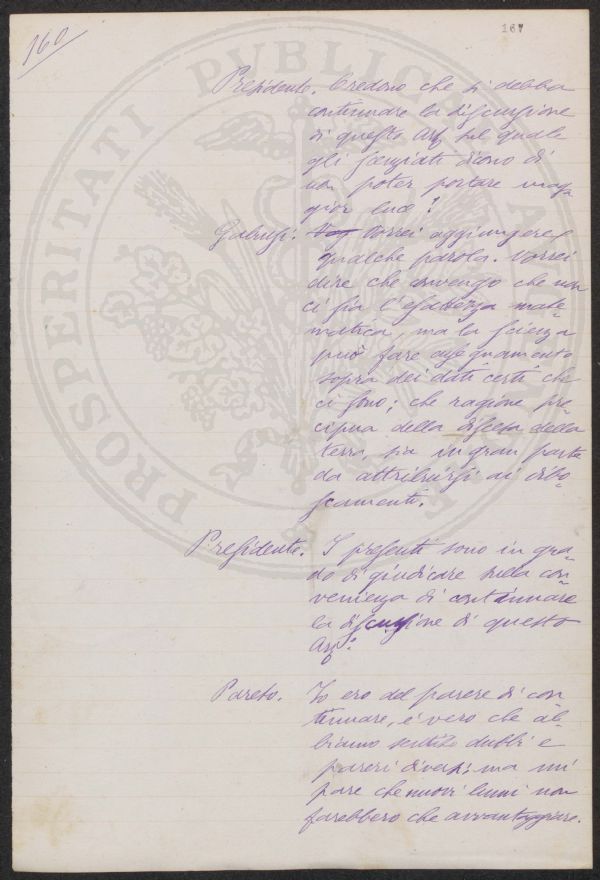 160
167
Presidente. Credono che si debba
continuare la discussione
di questo Art. sul quale
gli scenziati dicono di
non poter portare mag-
gior luce?
Gabussi. Vorrei aggiungere
qualche parola. Vorrei
dire che convengo che non
ci sia l'esattezza mate-
matica, ma la scienza
può fare assegnamento
sopra dei dati certi che
ci sono; che ragione pre-
cipua della discesa della
terra, sia in gran parte
da attribuirsi ai dibo-
scamenti.
Presidente. I presenti sono in gra-
do di giudicare sulla con-
venienza di continuare
la discussione di questo
Art.?
Pareto. Io ero del parere di con-
tinuare, è vero che ab-
biamo sentito dubbi e
pareri diversi; ma mi
pare che nuovi lumi non
farebbero che avvantaggiare.
PROSPERITATI PUBLICAE